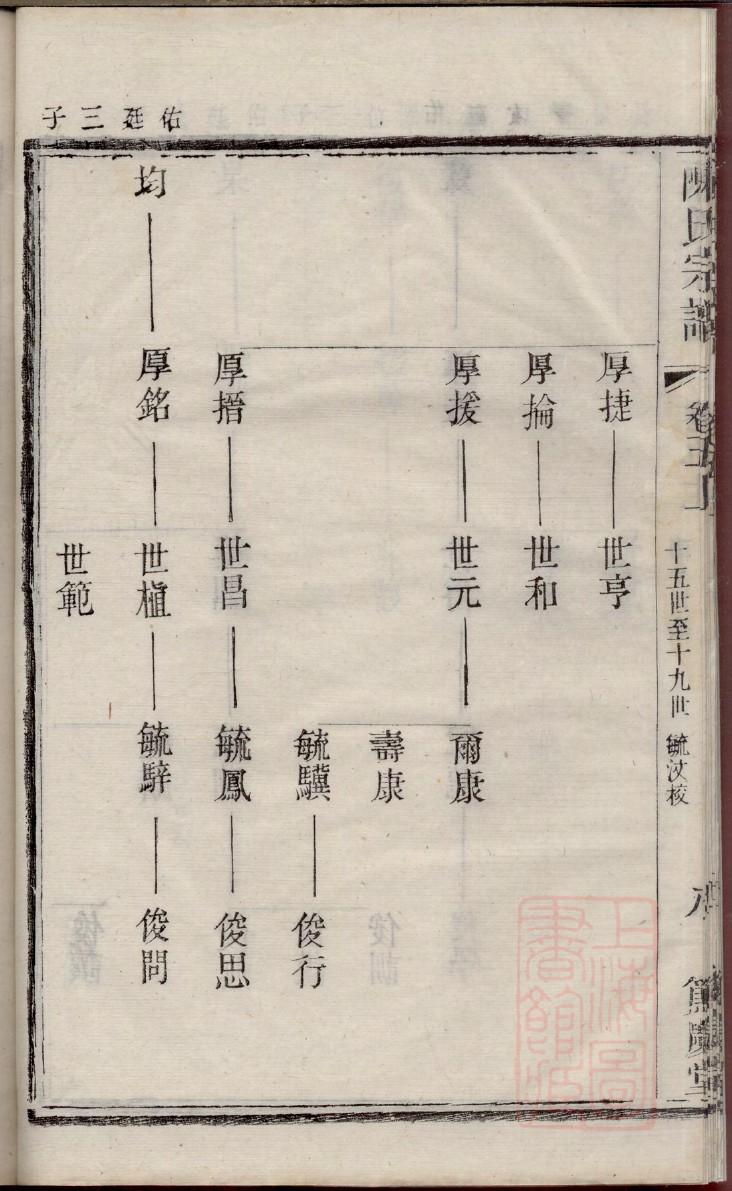 陳氏宗譜
卷五上
十五世至十九世
毓汶校
篤慶堂
厚捷 世亨
厚掄 世和
厚援 世元 爾康
壽康
毓驥 俊行
厚搢 世昌 毓鳳 俊思
均 厚銘 世楨 毓騂 俊問
世範
佑廷三子
上海圖書館藏